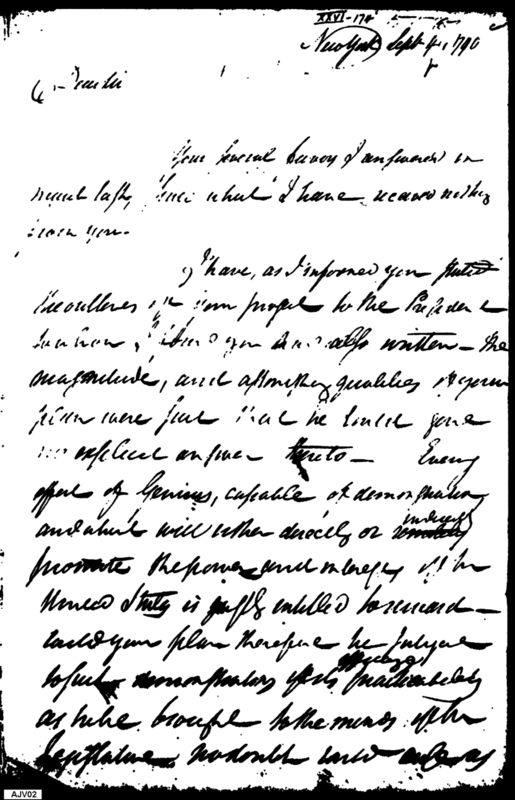 XXVI-174
New York Sept 4, 1790
Dear Sir
Your several favors I answered in
last, since what I have received nothing
from you.
I have, as I informed you stated
the outlines of your project to the President
of you have also written — the
magnitude, and astonishing qualities of your
plan were such that he could give
no explicit answer thereto — Every
effort of Genius, capable of demonstration
and which will either directly or indirectly
promote the power and interests of the
United States is justly entitled to reward —
could your plan therefore be subject
to such demonstrations of its practicability
as to be brought to the minds of the
legislature, no doubt could as
AJV02